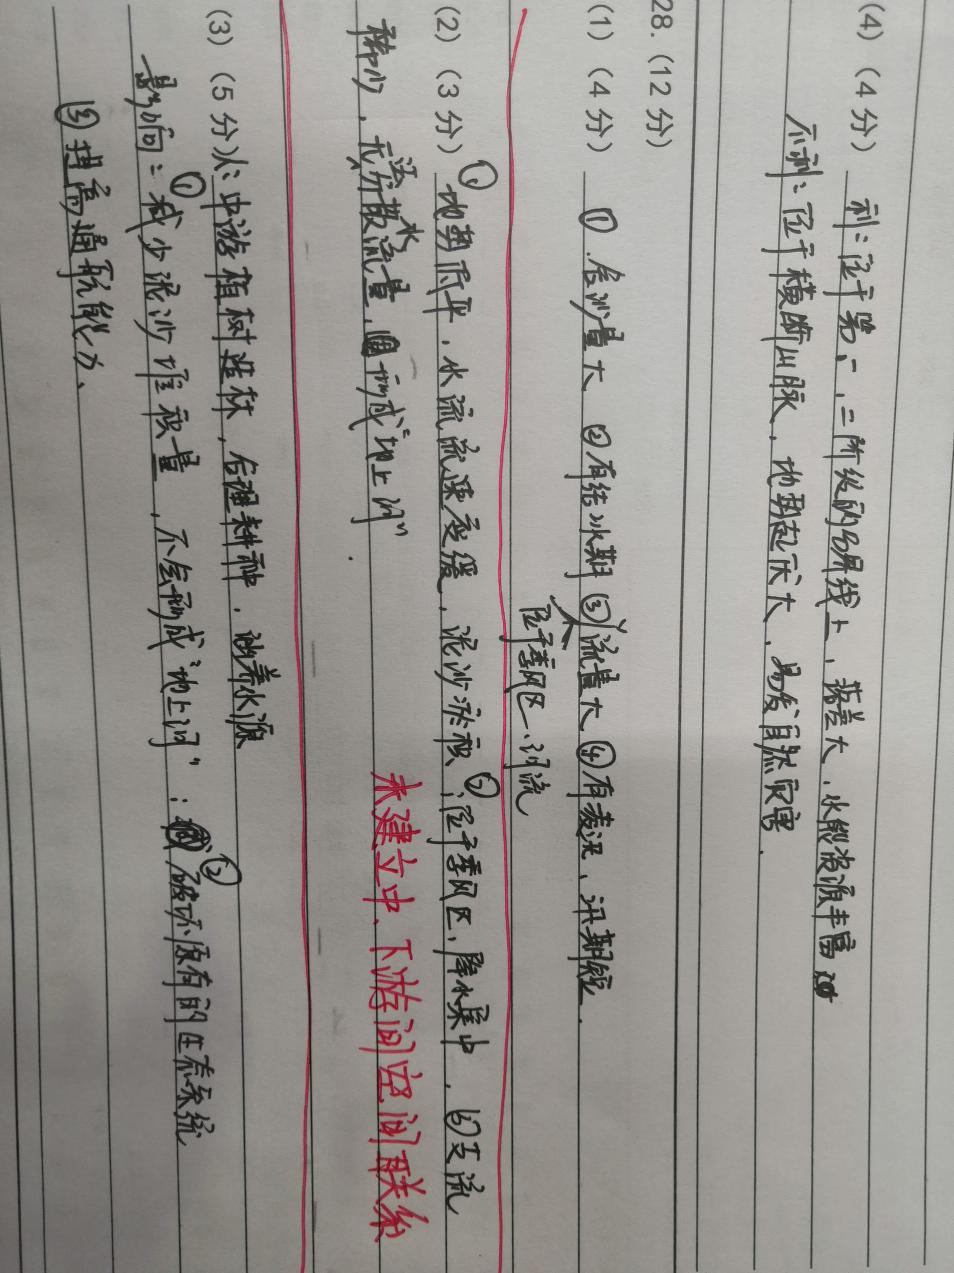 (4) (4分) 利:位于第一、二阶级的分界线上,落差大,水能资源丰富
不利:位于横断山脉,地势起伏大,易发自然灾害.
28. (12分)
(1) (4分) ①.含沙量大 ②有结冰期 ③流量大 ④有凌汛,汛期短.
位于季风区,河流
(2) (3分) ①地势低平,水流流速变缓,泥沙淤积;②位于季风区,降水集中,③支流
稀少,无法分散水流量,形成"地上河".
未建立中、下游间空间联系
(3) (5分) 从:中游植树造林,合理耕种,涵养水源
影响:①减少泥沙堆积量,不会形成"地上河";②破坏原有的生态系统
③提高通航能力、